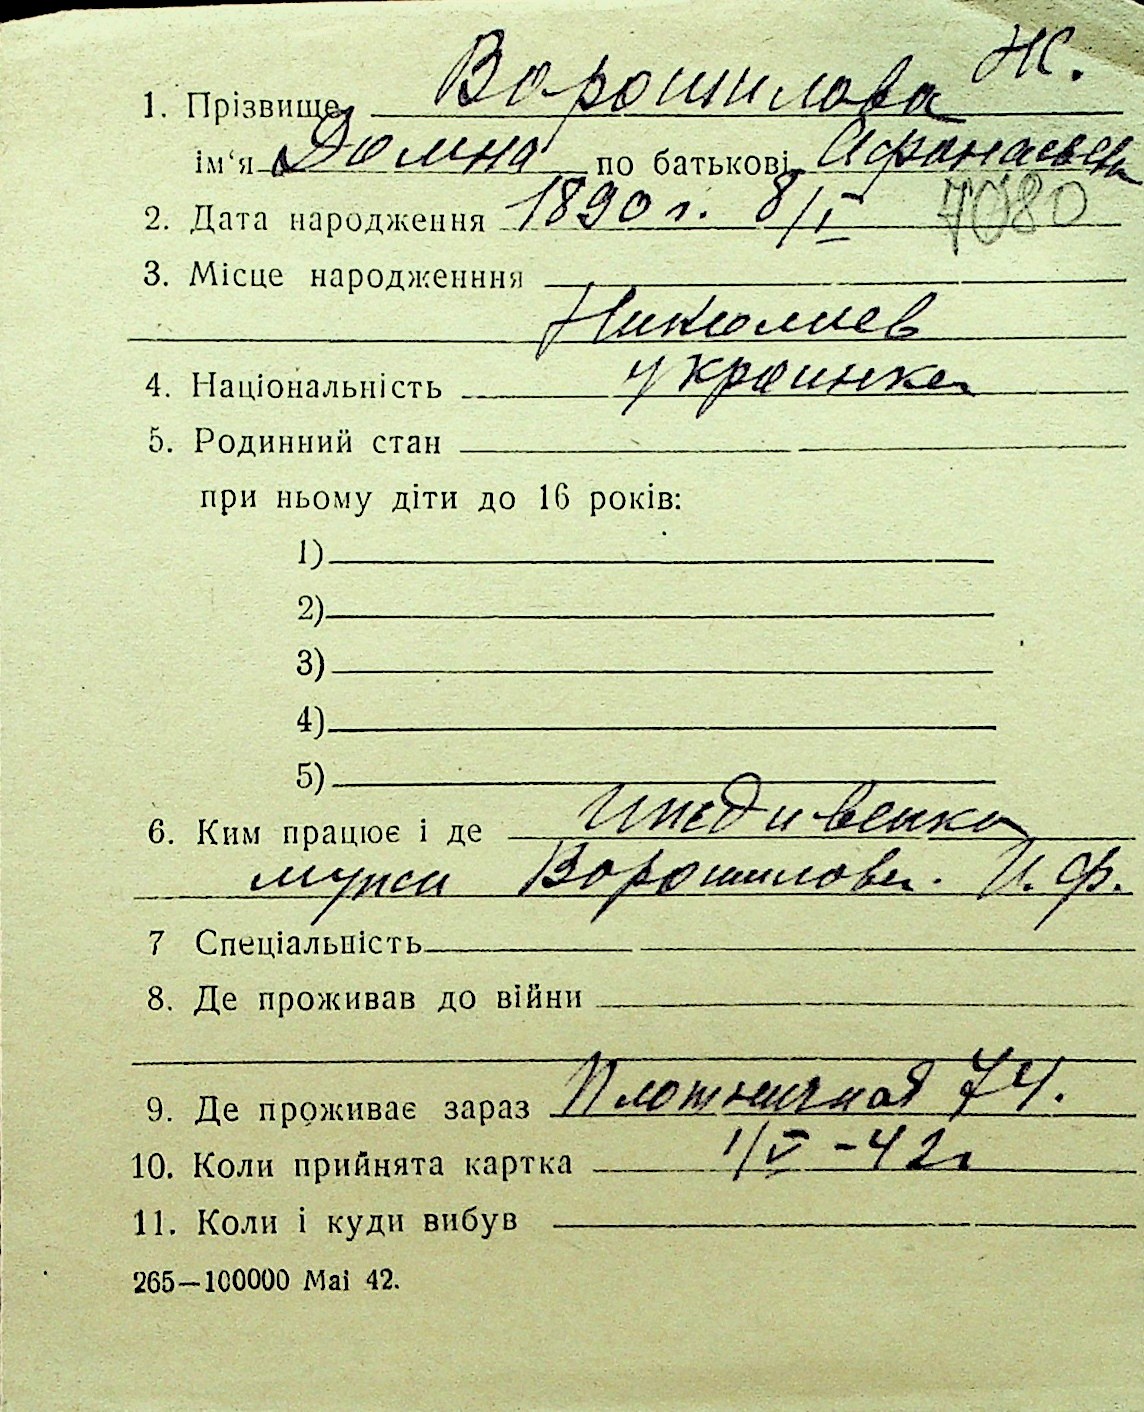 Ж.
1. Прізвище Ворошилова
ім‘я Домна по батькові Афанасьевн
2. Дата народження 1890 г. 8/I 7080
3. Місце народженння
Николаев
4. Національність украинка
5. Родинний стан
при ньому діти до 16 років:
1)
2)
3)
4)
5)
6. Ким працює і де Иждивенка
мужа Ворошилова. И. Ф.
7 Спеціальність
8. Де проживав до війни
9. Де проживає зараз Плотничная 74.
10. Коли прийнята картка 1/V -42г
11. Коли і куди вибув
265—100000 Mai 42.